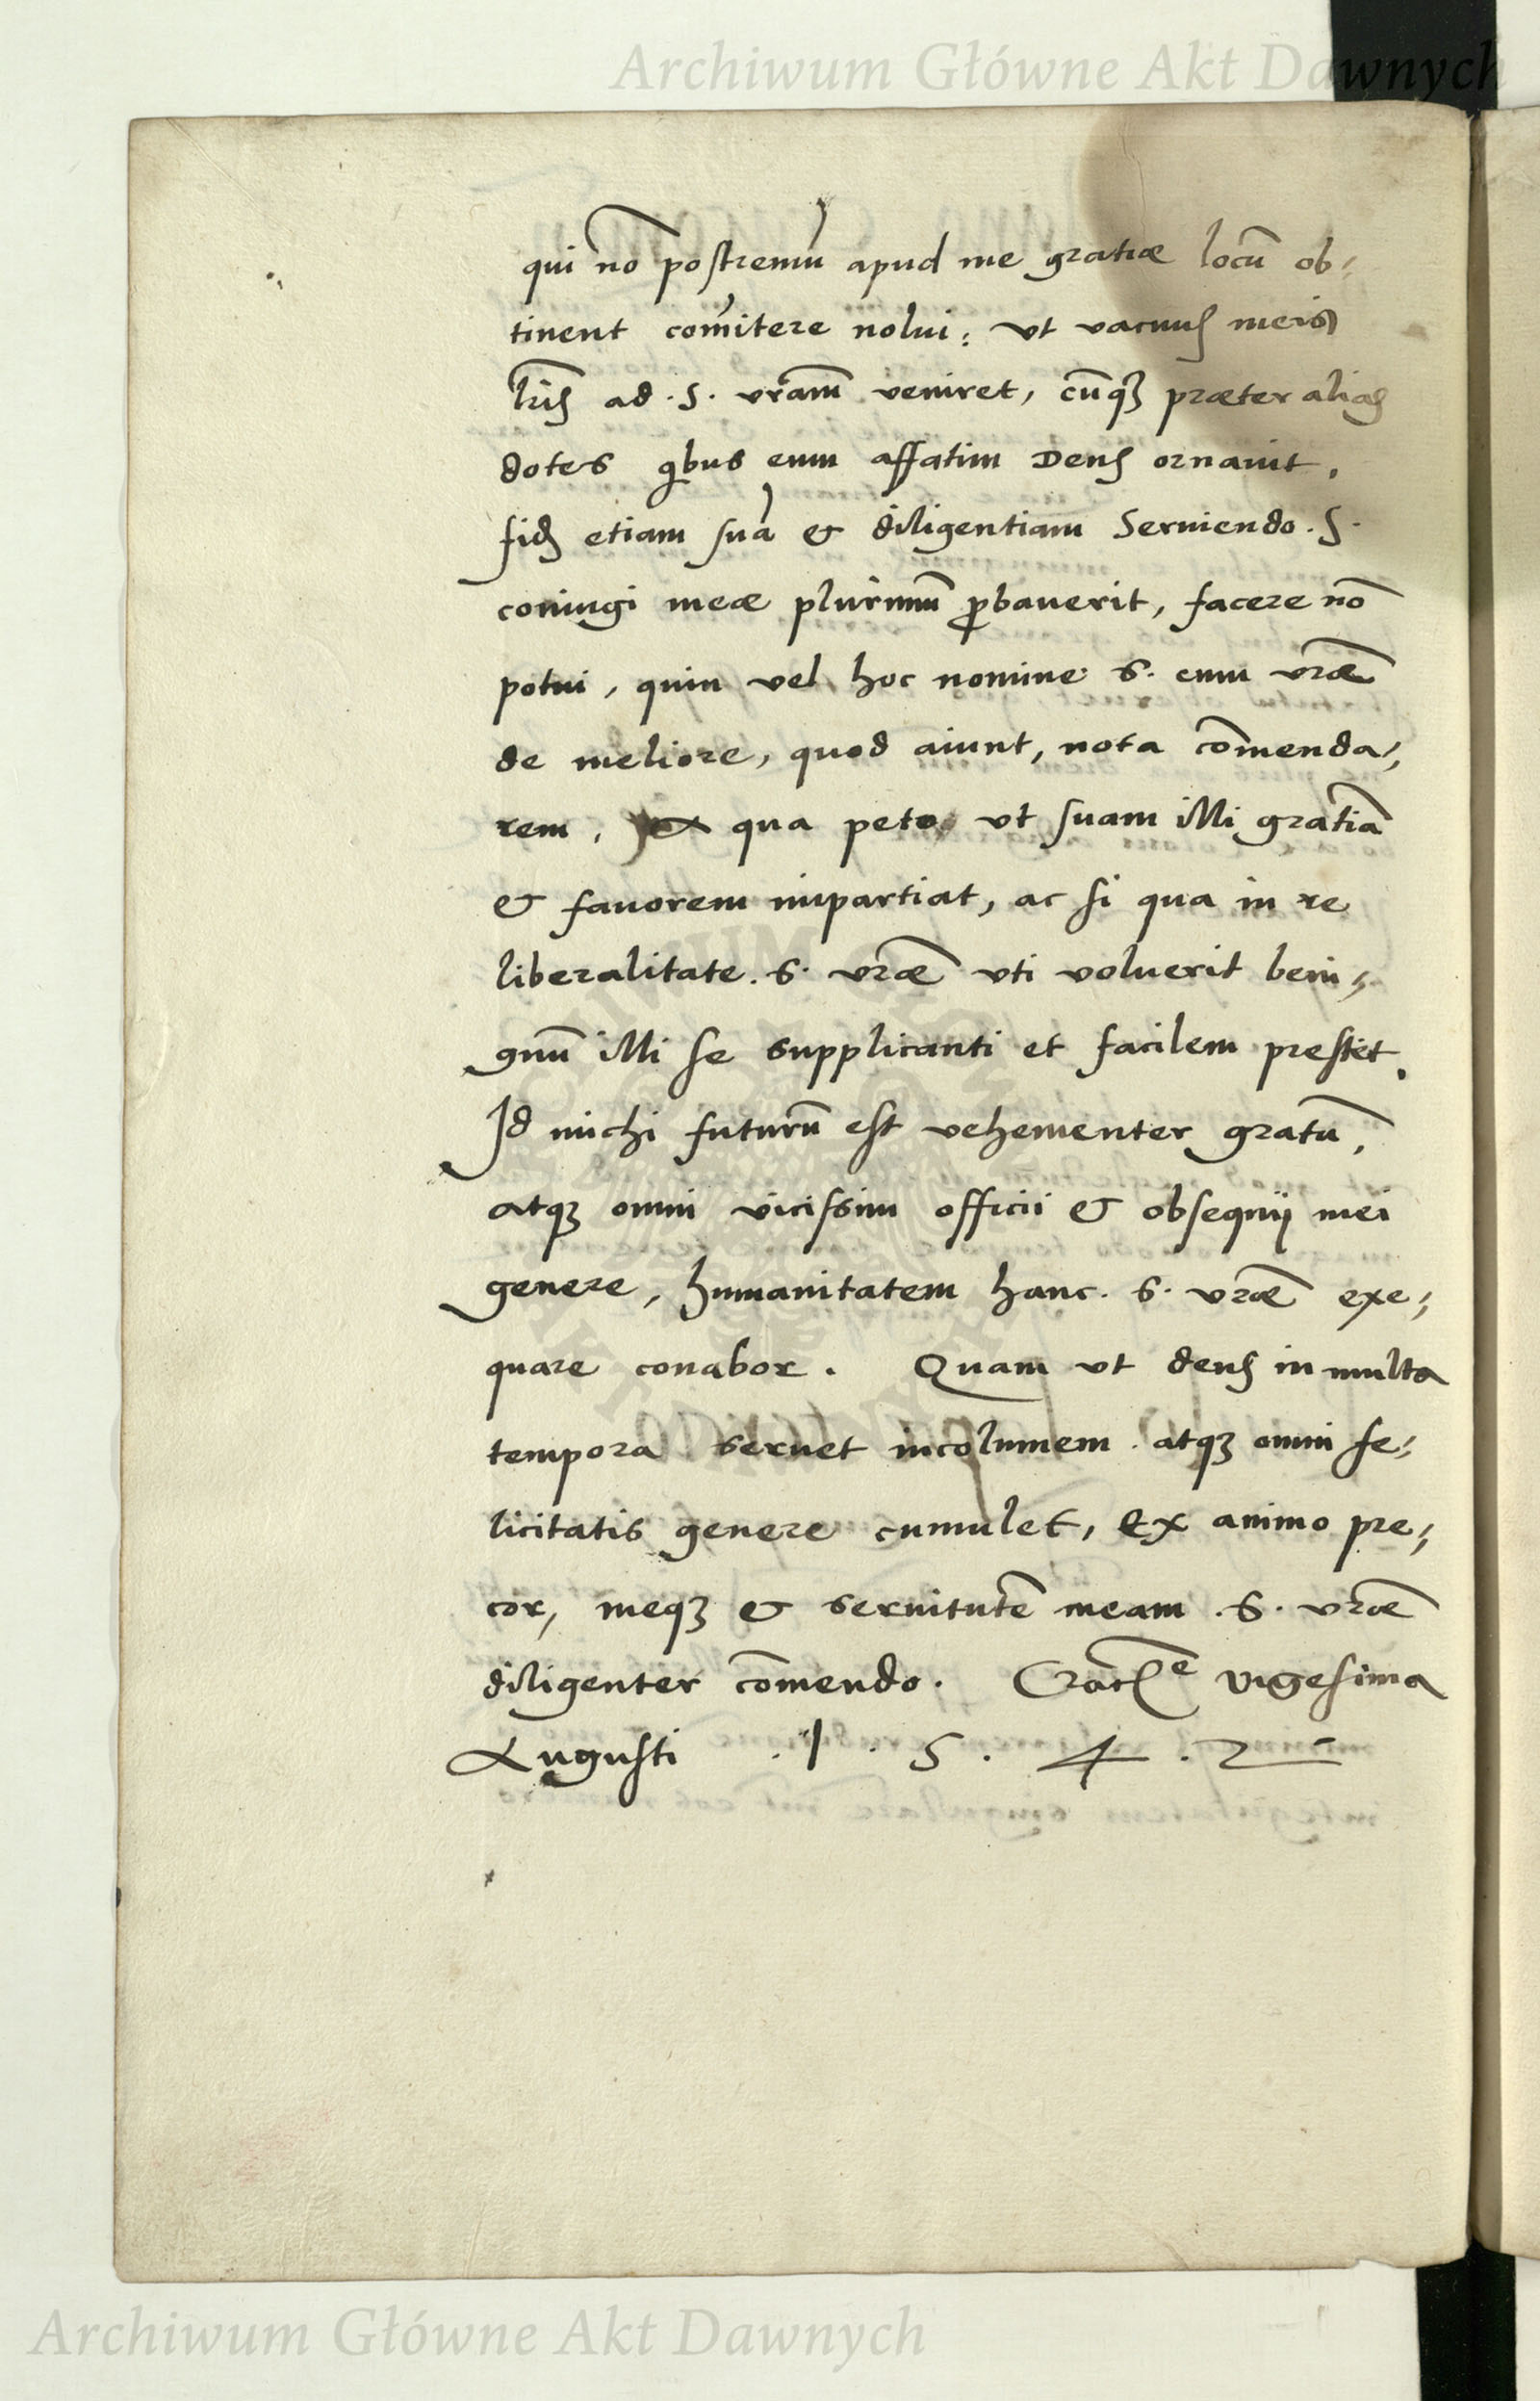 Archiwum Główne Akt Dawnych
qui nō postremū apud me gratiæ locū ob⸗
tinent com̄itere nolui: vt vacuus meis
lr̄is ad .S. vr̄am veniret, cūq₃ præter alias
dotes qͥbus eum affatim Deus ornauit,
fidē etiam suā & diligentiam Seruiendo .S.
coniugi meæ plurimū ꝓbauerit, facere nō
potui, quin vel hoc nomine S. eum vr̄æ
de meliore, quod aiunt, nota com̄enda⸗
rem, qua peto vt suam illi gratiā
& fauorem impartiat, ac si qua in re
liberalitate .S. vr̄æ vti voluerit beni⸗
gnū illi se supplicanti et facilem prestet.
Id michi futurū est vehementer gratū,
atq₃ omni vicissim officii & obsequij mei
genere, humanitatem hanc .S. vr̄æ exe⸗
quare conabor. Quam vt deus in multa
tempora seruet incolumem atq₃ omni fe⸗
licitatis genere cumulet, ex animo pre⸗
cor, meq₃ & seruitutē meam .S. vr̄æ
diligenter com̄endo. Crac̄e vigesima
Augusti .1.5.4.2
Archiwum Główne Akt Dawnych